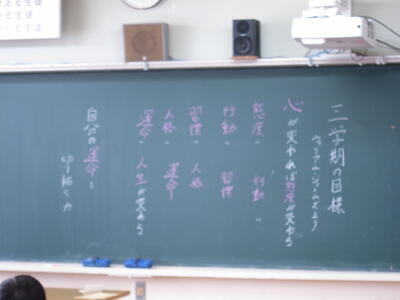 三学期の目標
ウィリアム・ジェームズより
心が変われば態度が変わる
態度 〃 行動 〃
行動 〃 習慣
習慣 〃 人格
人格 〃 運命
運命 〃 人生が変わる
自分の運命を
切り拓く力
える生徒
る生徒
る生徒